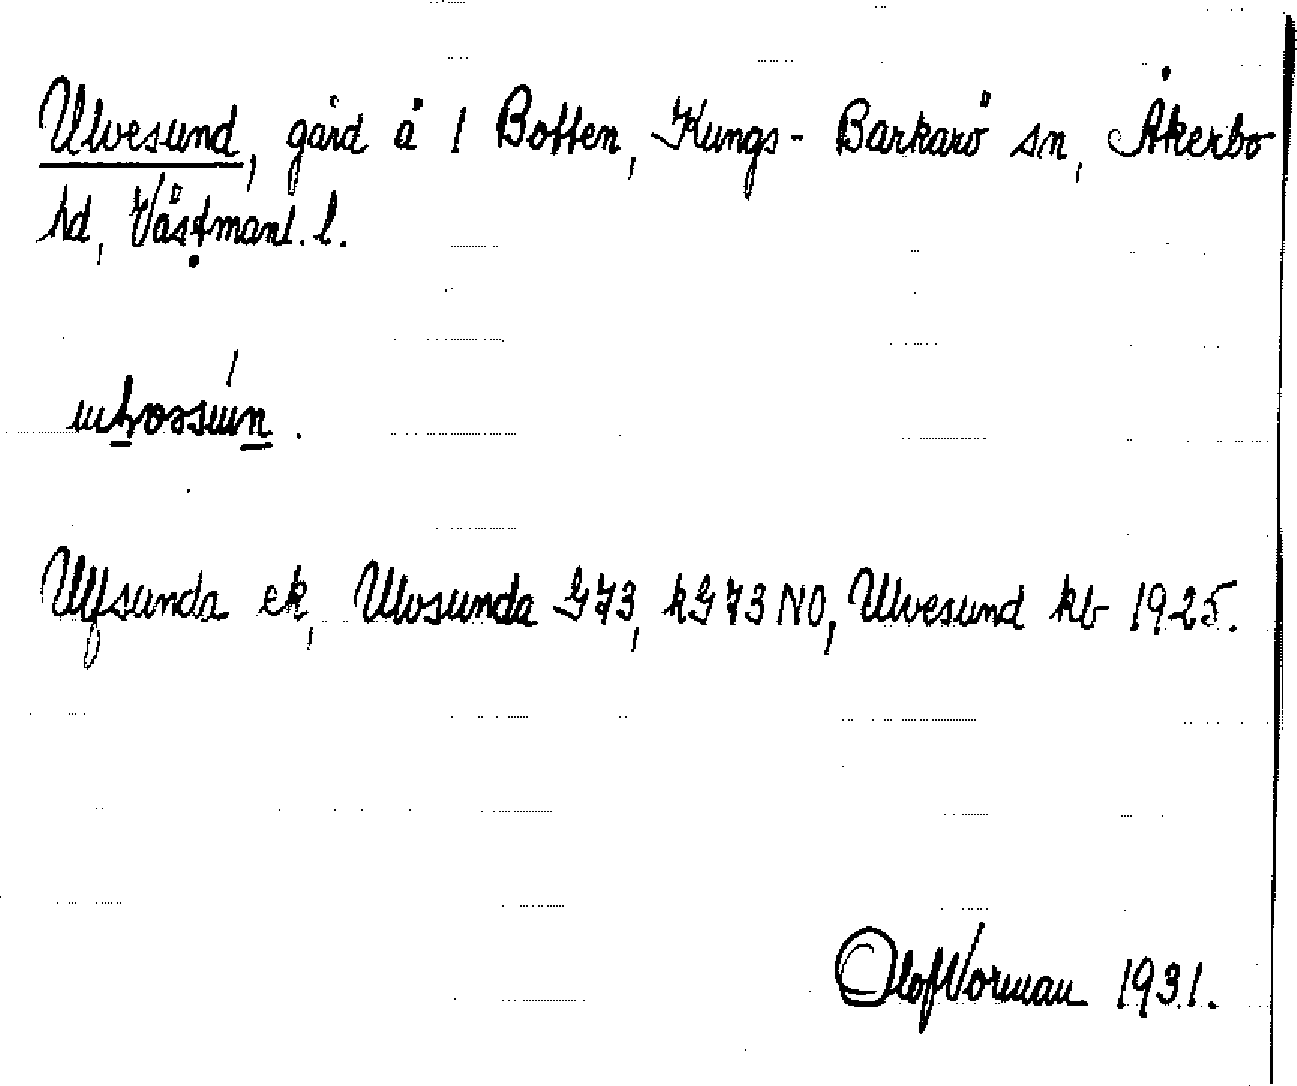 Ulvesund, gård å 1 Botten, Kungs-Barkarö sn, Åkerbo
hd, Västmanl. l.
Ulfsunda ek, Ulvsunda G73, kG73NO, Ulvesund kb 1925.
Olof Vorman 1931.